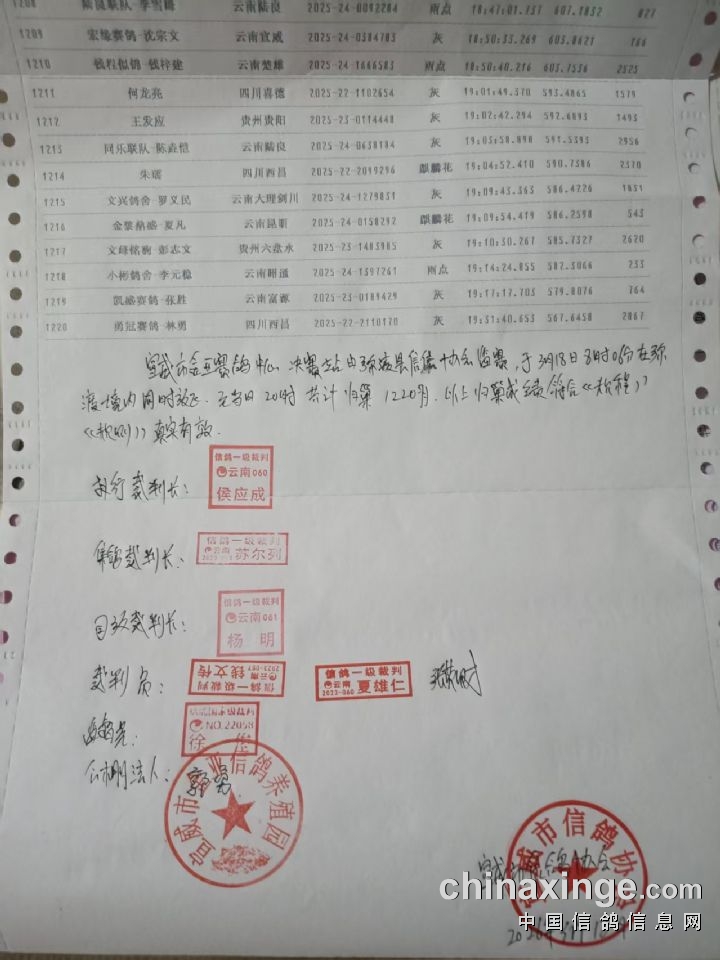 1208 陆良联队-李雪峰 云南陆良 2025-24-0092284 雨点 18:47:01.137 607.1832 827
1209 宏缘赛鸽-沈宗文 云南宣威 2025-24-0384783 灰 18:50:33.269 603.8621 166
1210 钱程似鸽-钱梓建 云南楚雄 2025-24-1666583 雨点 18:50:40.216 603.7536 2525
1211 何龙亮 四川喜德 2025-22-1102654 灰 19:01:49.370 593.4865 1579
1212 王发应 贵州贵阳 2025-23-0114448 灰 19:02:42.294 592.6893 1493
1213 同乐联队-陈垚恺 云南陆良 2025-24-0638184 灰 19:03:58.898 591.5393 2956
1214 朱瑞 四川西昌 2025-22-2099296 麒麟花 19:04:52.410 590.7386 2370
1215 文兴鸽舍-罗义民 云南大理剑川 2025-24-1279831 灰 19:09:43.363 586.4226 1831
1216 夏凡 云南昆明 2025-24-0158292 麒麟花 19:09:54.419 586.2598 543
1217 彭志文 贵州六盘水 2025-23-1483985 灰 19:10:30.267 585.7327 2620
1218 小彬鸽舍-李元稳 云南昭通 2025-24-1397261 雨点 19:14:24.855 582.3066 233
1219 凯盛赛鸽-张胜 云南富源 2025-23-0189429 灰 19:17:17.703 579.8076 764
1220 勇冠赛鸽-林勇 四川西昌 2025-22-2110170 灰 19:31:40.653 567.6458 2867
宣威市金亚赛鸽中心 决赛站由弥渡县信鸽协会监赛，于3月18日8时0份在弥
渡境内同时放飞. 至当日20时 共计归巢1220羽. 以上归巢成绩符合《规程》
《规则》真实有效.
执行裁判长： 信鸽一级裁判 云南060 侯应成
集鸽裁判长： 信鸽一级裁判 云南 苏尔列
司放裁判长： 信鸽一级裁判 云南061 杨明
裁判员： 信鸽一级裁判 云南 2023-057 钱文传 信鸽一级裁判 云南 2023-060 夏雄仁
信鸽国家级裁判 NO.22058 徐
公棚法人： 宣威市 亚信鸽养殖园
宣威市信鸽协会
chinaxinge.com
中国信鸽信息网